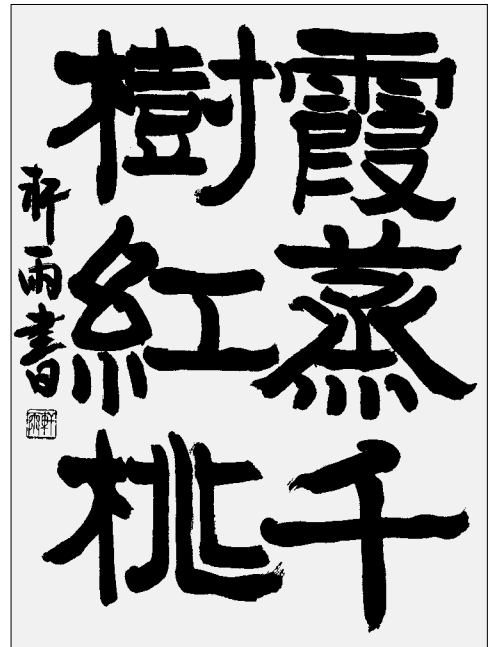 霞蒸千
樹紅桃
軒雨書